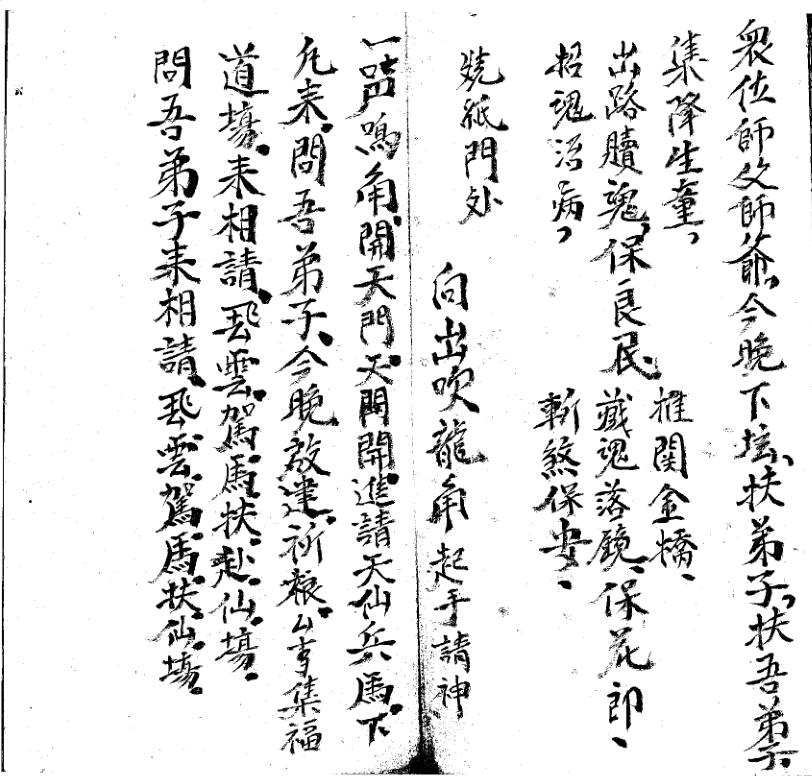 衆位師父師爺，今晚下坛、扶弟子，扶吾弟子
集降生童，
推関金橋、
出路贖魂，保良民
藏魂落鏡、保花郎、
招魂治病，
斬煞保安、
燒紙門外
向出吹龍角起手請神
一声鳴角，開天門，天門開開進請天仙兵馬下
凡来，問吾弟子、今晚敲建祈禳公亊集福
道場，来相請、飛雲駕馬扶赴仙場
問吾弟子来相請、飛雲駕馬扶仙場